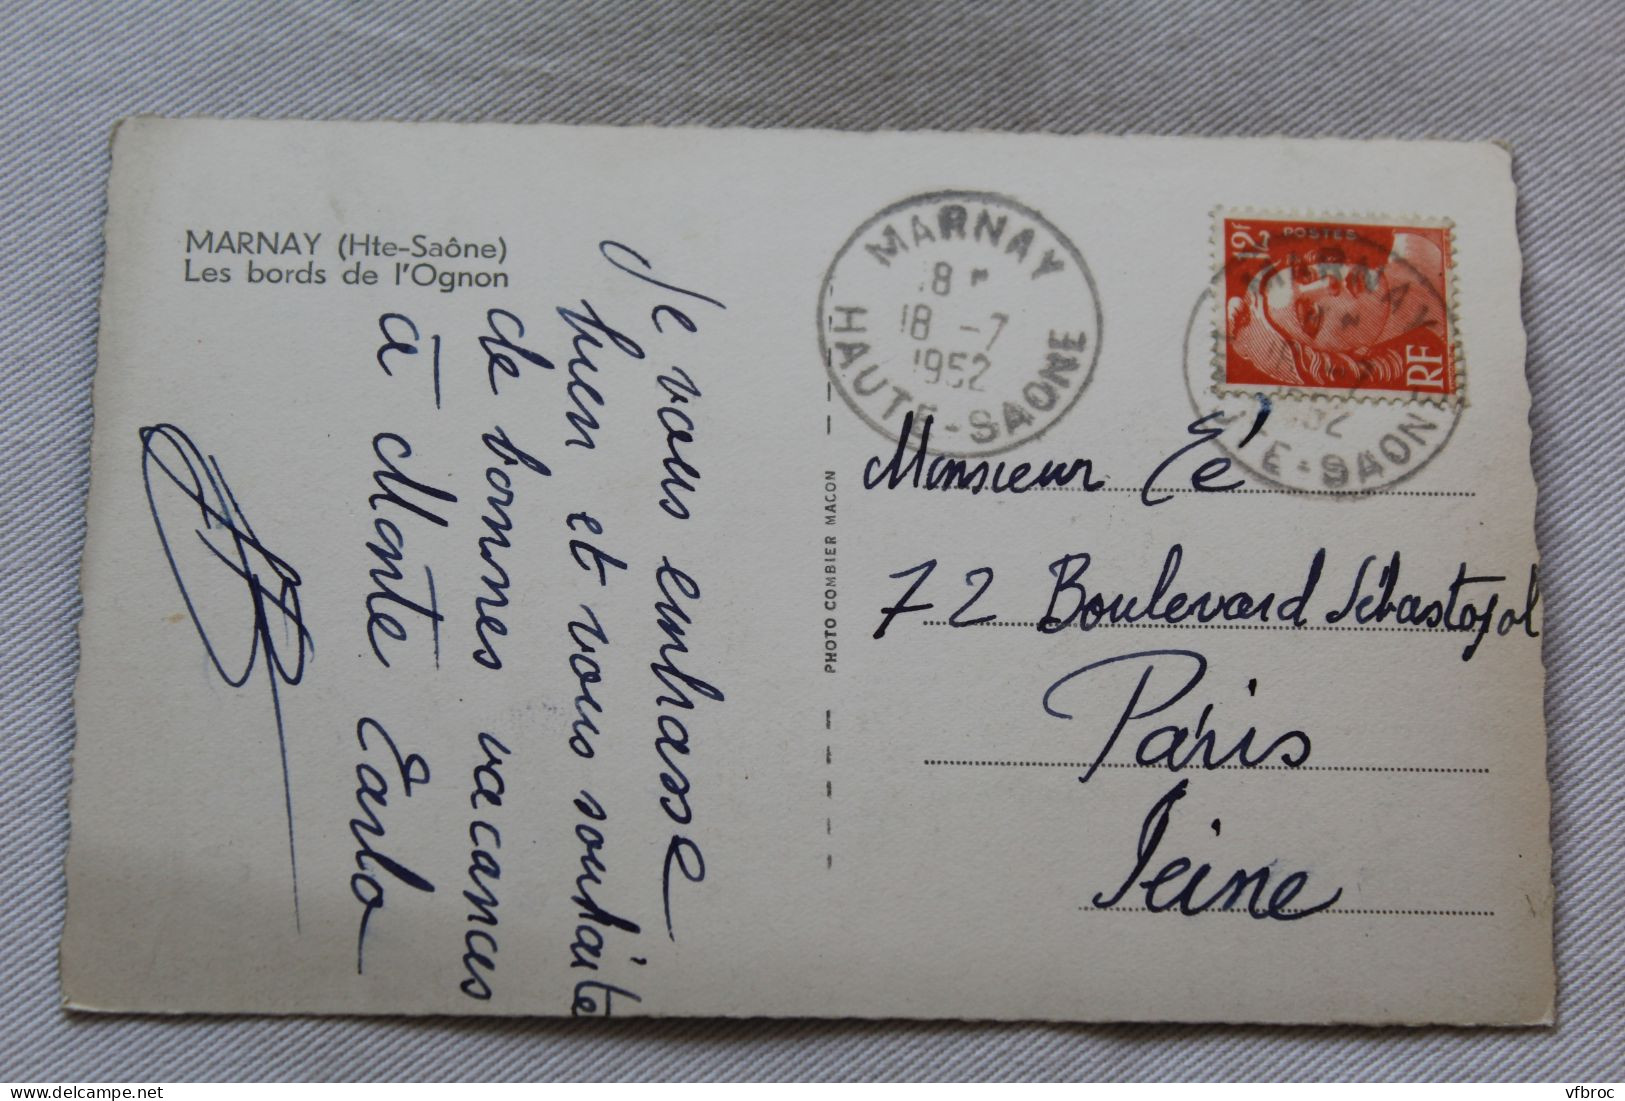 MARNAY (Hte-Saône)
Les bords de l'Ognon
Je vous embrasse
bien et vous souhaite
de bonnes vacances
à Monte Carlo
PHOTO COMBIER MACON
MARNAY
18 H
18 -7
1952
HAUTE-SAONE
12F
POSTES
RF
MARNAY
1952
HAUTE-SAONE
Monsieur Zé
72 Boulevard Sébastopol
Paris
Seine
vfbroc